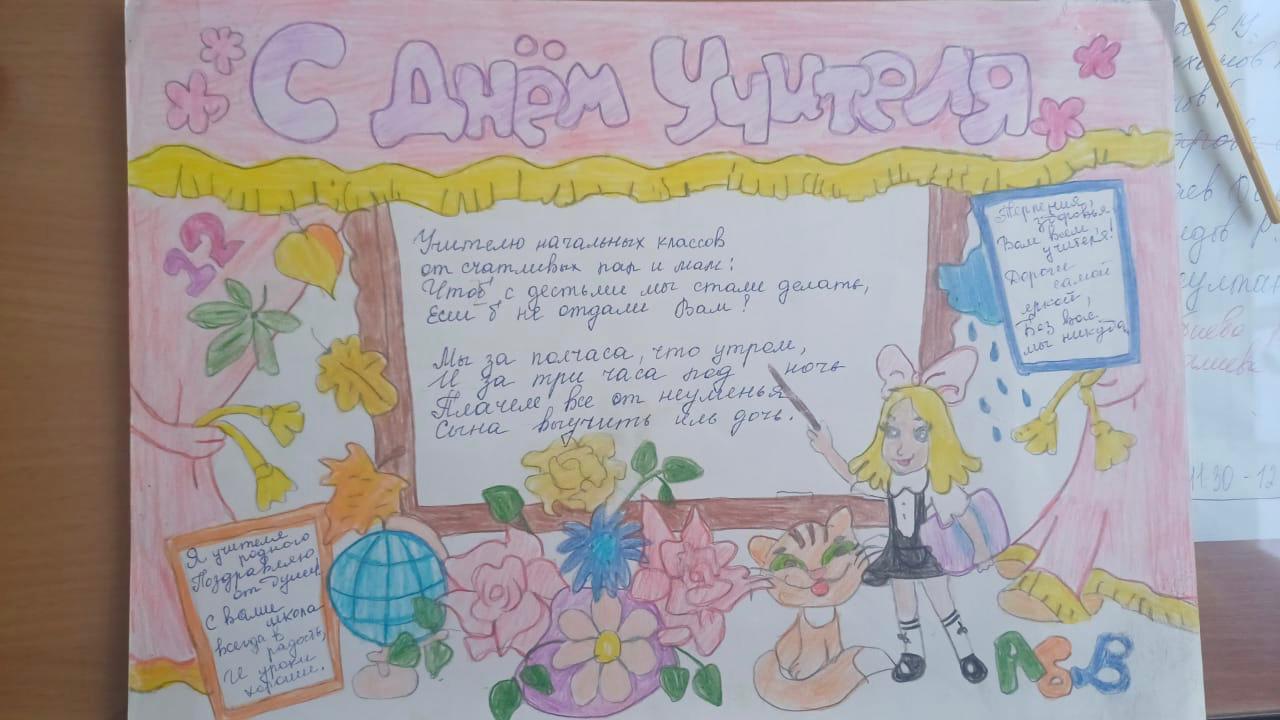 С Днём Учителя
12
Учителю начальных классов
от счастливых пап и мам:
Чтоб с детьми мы стали делать,
Если б не отдали Вам!
Мы за полчаса, что утром,
И за три часа под ночь
Плачем все от неуменья
Сына выучить иль дочь.
Терпения,
здоровья
Вам всем
учителя!
Дороги
самой
яркой,
Без вас
мы никуда
Я учителя
родного
Поздравляю
от души
С вами
школа
всегда в
радость,
И уроки
хороши.
АБВ
11:30 - 12